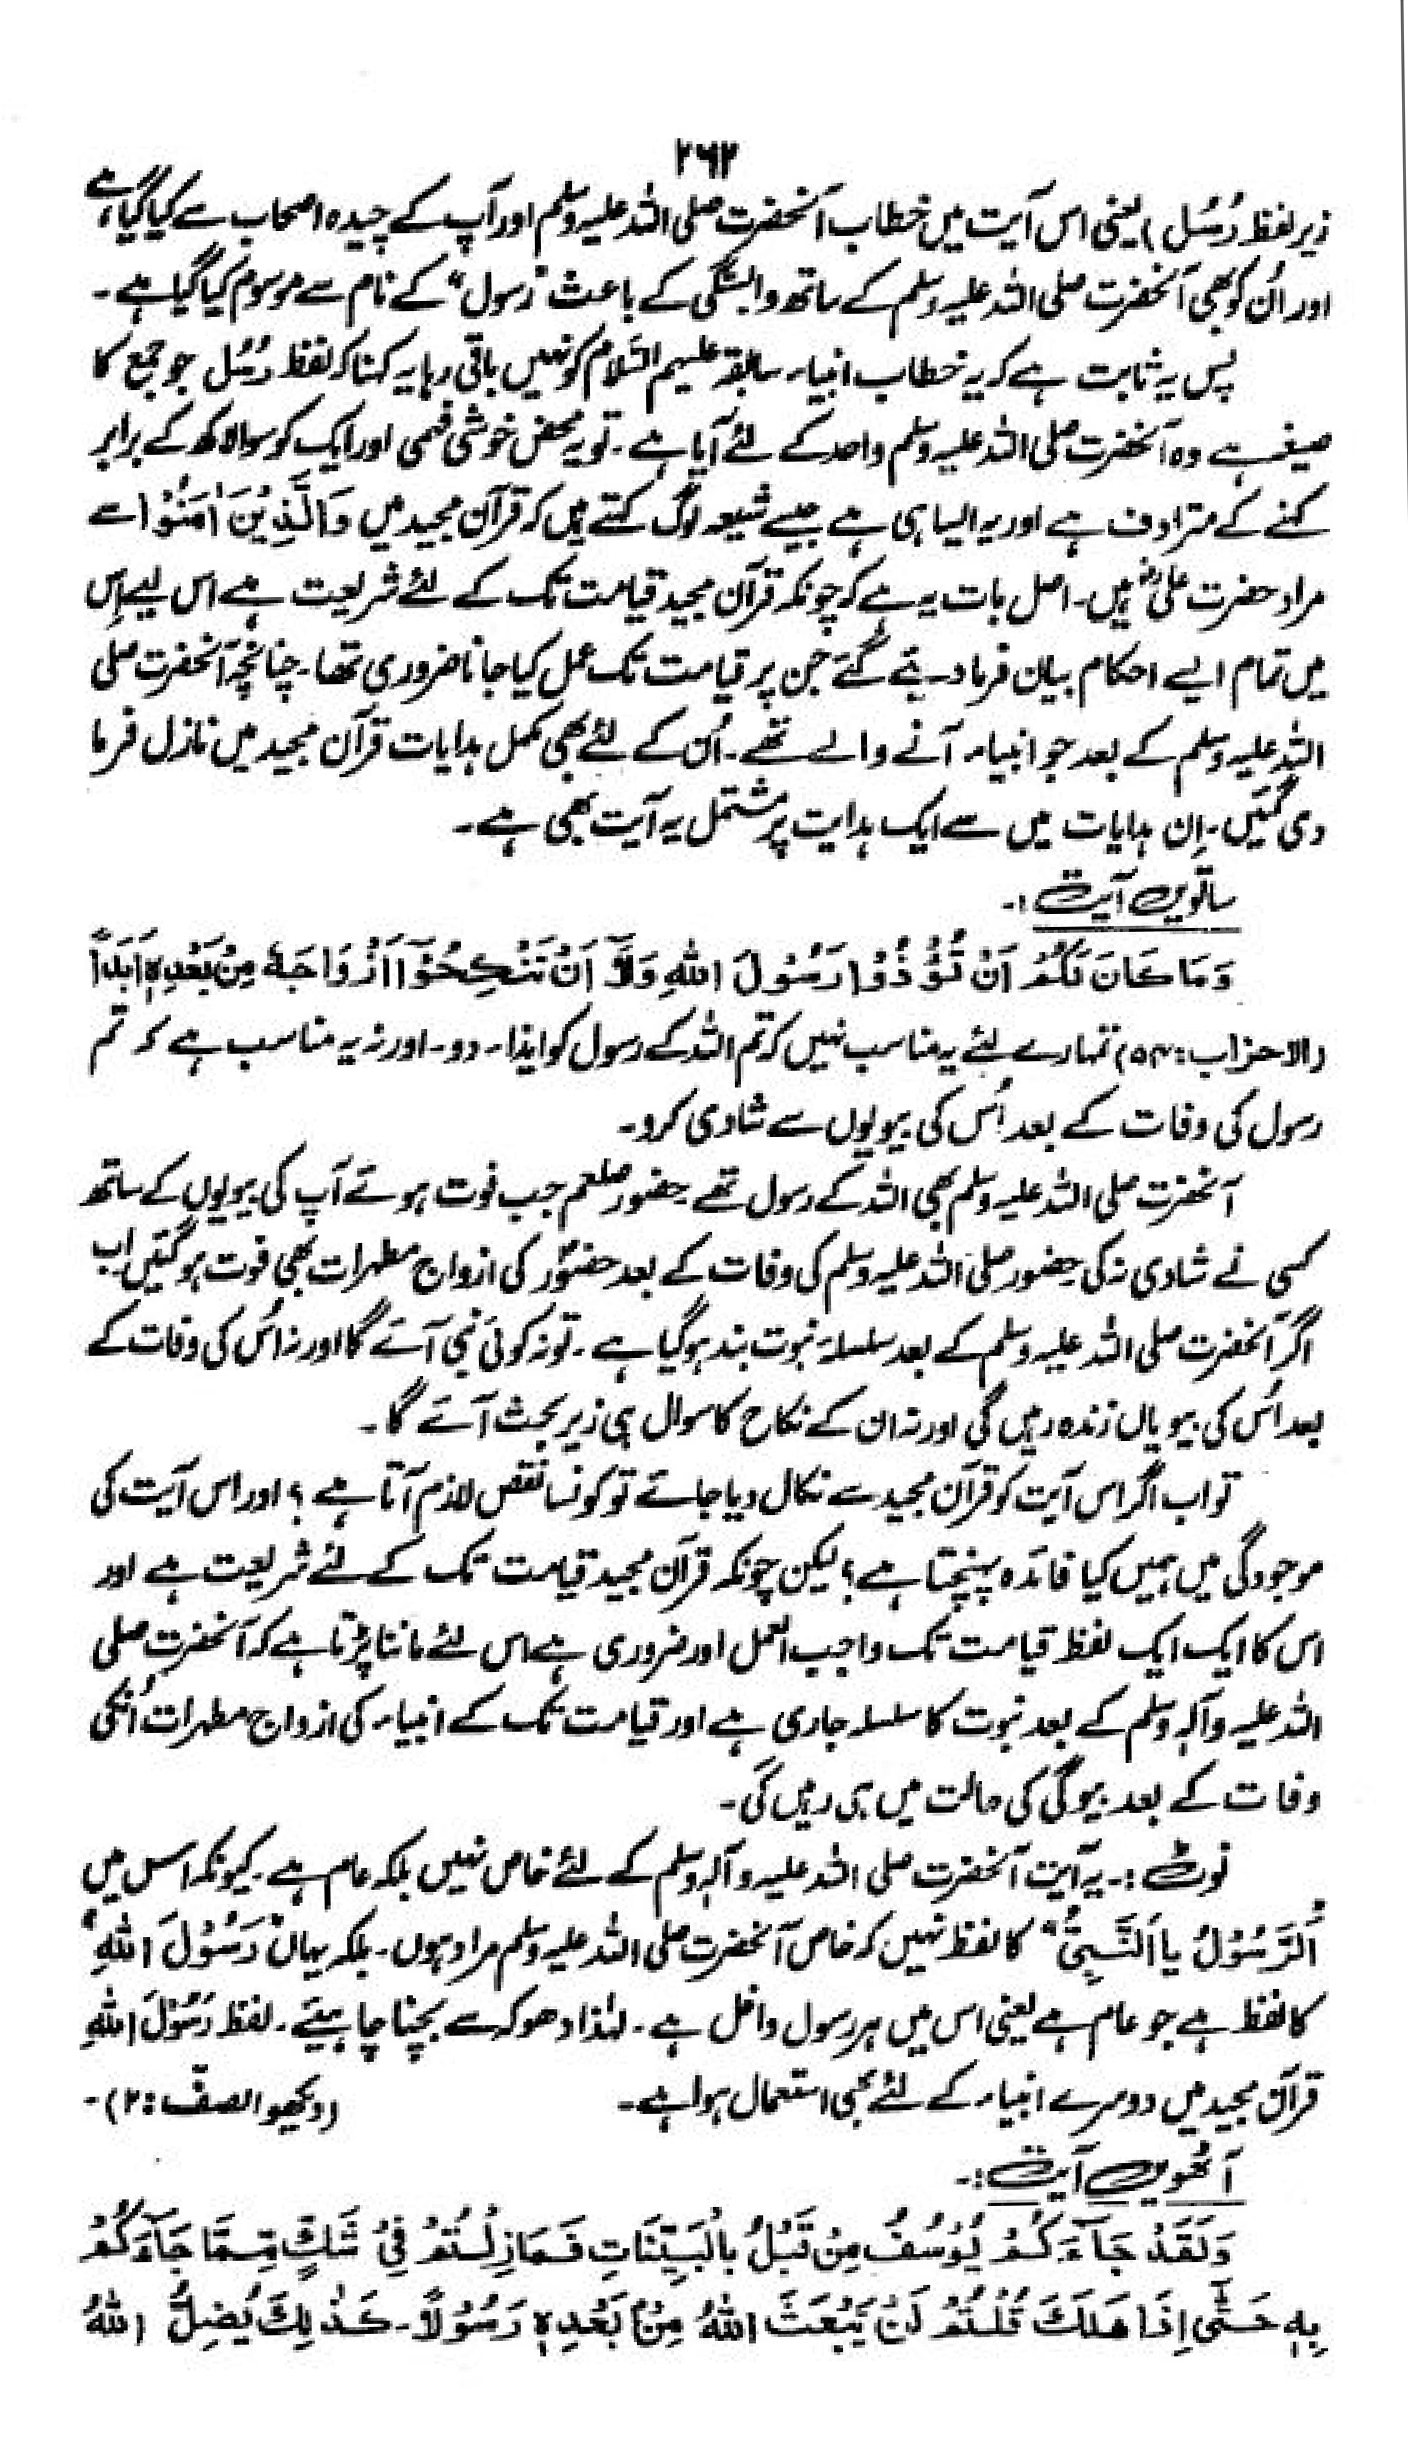 ۲۶۲
زیر لفظ رُسُل) یعنی اس آیت میں خطاب آنحضرت صلی اللہ علیہ وسلم اور آپ کے چیدہ اصحاب سے کیا گیا ہے،
اور اُن کو بھی آنحضرت صلی اللہ علیہ وسلم کے ساتھ وابستگی کے باعث "رسول" کے نام سے موسوم کیا گیا ہے۔
پس یہ ثابت ہے کہ یہ خطاب انبیاء سابقہ علیہم السّلام کو نہیں باقی رہا یہ کہنا کہ لفظ رُسُل جو جمع کا
صیغہ ہے وہ آنحضرت صلی اللہ علیہ وسلم واحد کے لئے آیا ہے۔ تو یہ محض خوشی فہمی اور ایک کو سوا لاکھ کے برابر
کہنے کے مترادف ہے اور یہ ایسا ہی ہے جیسے شیعہ لوگ کہتے ہیں کہ قرآن مجید میں وَالَّذِيْنَ اٰمَنُوْا سے
مراد حضرت علیؓ ہیں۔ اصل بات یہ ہے کہ چونکہ قرآن مجید قیامت تک کے لئے شریعت ہے اس لیے اِس
میں تمام ایسے احکام بیان فرما دیئے گئے جن پر قیامت تک عمل کیا جانا ضروری تھا۔ چنانچہ آنحضرت صلی
اللہ علیہ وسلم کے بعد جو انبیاء آنے والے تھے۔ اُن کے لئے بھی مکمل ہدایات قرآن مجید میں نازل فرما
دی گئیں۔ اِن ہدایات میں سے ایک ہدایت پر مشتمل یہ آیت بھی ہے۔
ساتویں آیت :۔
وَمَا كَانَ لَكُمْ اَنْ تُؤْذُوْا رَسُوْلَ اللّٰهِ وَلَآ اَنْ تَنْكِحُوْٓا اَزْوَاجَهٗ مِنْۢ بَعْدِهٖٓ اَبَدًا
(الاحزاب : ۵۴) تمہارے لئے یہ مناسب نہیں کہ تم اللہ کے رسول کو ایذاء دو۔ اور نہ یہ مناسب ہے کہ تم
رسول کی وفات کے بعد اُس کی بیویوں سے شادی کرو۔
آنحضرت صلی اللہ علیہ وسلم بھی اللہ کے رسول تھے حضور صلعم جب فوت ہوئے آپ کی بیویوں کے ساتھ
کسی نے شادی نہ کی حضور صلی اللہ علیہ وسلم کی وفات کے بعد حضورؐ کی ازواج مطہرات بھی فوت ہو گئیں اب
اگر آنحضرت صلی اللہ علیہ وسلم کے بعد سلسلہٴ نبوت بند ہو گیا ہے۔ تو نہ کوئی نبی آئے گا اور نہ اُس کی وفات کے
بعد اُس کی بیویاں زندہ رہیں گی اور نہ ان کے نکاح کا سوال ہی زیر بحث آئے گا۔
تو اب اگر اس آیت کو قرآن مجید سے نکال دیا جائے تو کونسا نقص لازم آتا ہے؟ اور اس آیت کی
موجودگی میں ہمیں کیا فائدہ پہنچتا ہے؟ لیکن چونکہ قرآن مجید قیامت تک کے لئے شریعت ہے اور
اس کا ایک ایک لفظ قیامت تک واجب العمل اور ضروری ہے اس لئے ماننا پڑتا ہے کہ آنحضرت صلی
اللہ علیہ وآلہٖ وسلم کے بعد نبوت کا سلسلہ جاری ہے اور قیامت تک کے انبیاء کی ازواج مطہرات اُنکی
وفات کے بعد بیوگی کی حالت میں ہی رہیں گی۔
نوٹ :۔ یہ آیت آنحضرت صلی اللہ علیہ وآلہٖ وسلم کے لئے خاص نہیں بلکہ عام ہے۔ کیونکہ اس میں
"اَلرَّسُوْلُ یا اَلنَّبِيُّ" کا لفظ نہیں کہ خاص آنحضرت صلی اللہ علیہ وسلم مراد ہوں۔ بلکہ یہاں "رَسُوْلَ اللّٰهِ"
کا لفظ ہے جو عام ہے یعنی اس میں ہر رسول داخل ہے۔ لہٰذا دھوکہ سے بچنا چاہیئے۔ لفظ رَسُوْلَ اللّٰهِ
قرآن مجید میں دوسرے انبیاء کے لئے بھی استعمال ہوا ہے۔ (دیکھو الصفّ : ۲)۔
آٹھویں آیت :۔
وَلَقَدْ جَآءَكُمْ يُوْسُفُ مِنْ قَبْلُ بِالْبَيِّنَاتِ فَمَازِلْتُمْ فِيْ شَكٍّ مِّمَّا جَآءَكُمْ
بِهٖ حَتّٰٓى اِذَا هَلَكَ قُلْتُمْ لَنْ يَّبْعَثَ اللّٰهُ مِنْۢ بَعْدِهٖ رَسُوْلًا۔ كَذٰلِكَ يُضِلُّ اللّٰهُ